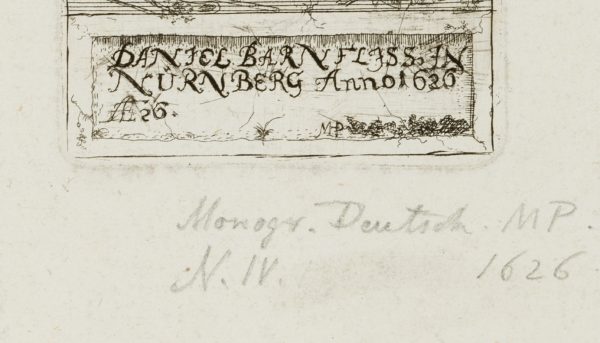 DANIEL BARNFLISS. IN
NÜRNBERG Anno 1626
Æ 26.
MP
Monogr. Deutsch. MP.
N. IV. 1626